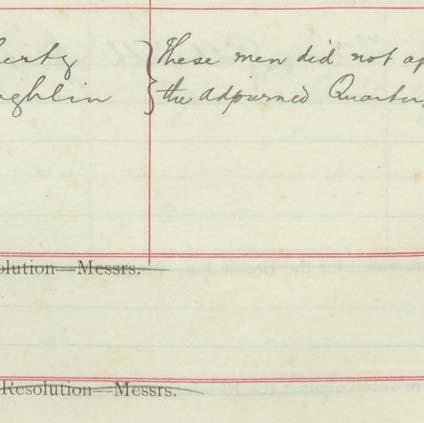 erty } These men did not ap
ughlin } the adjourned Quarter
olution—Messrs.
Resolution—Messrs.